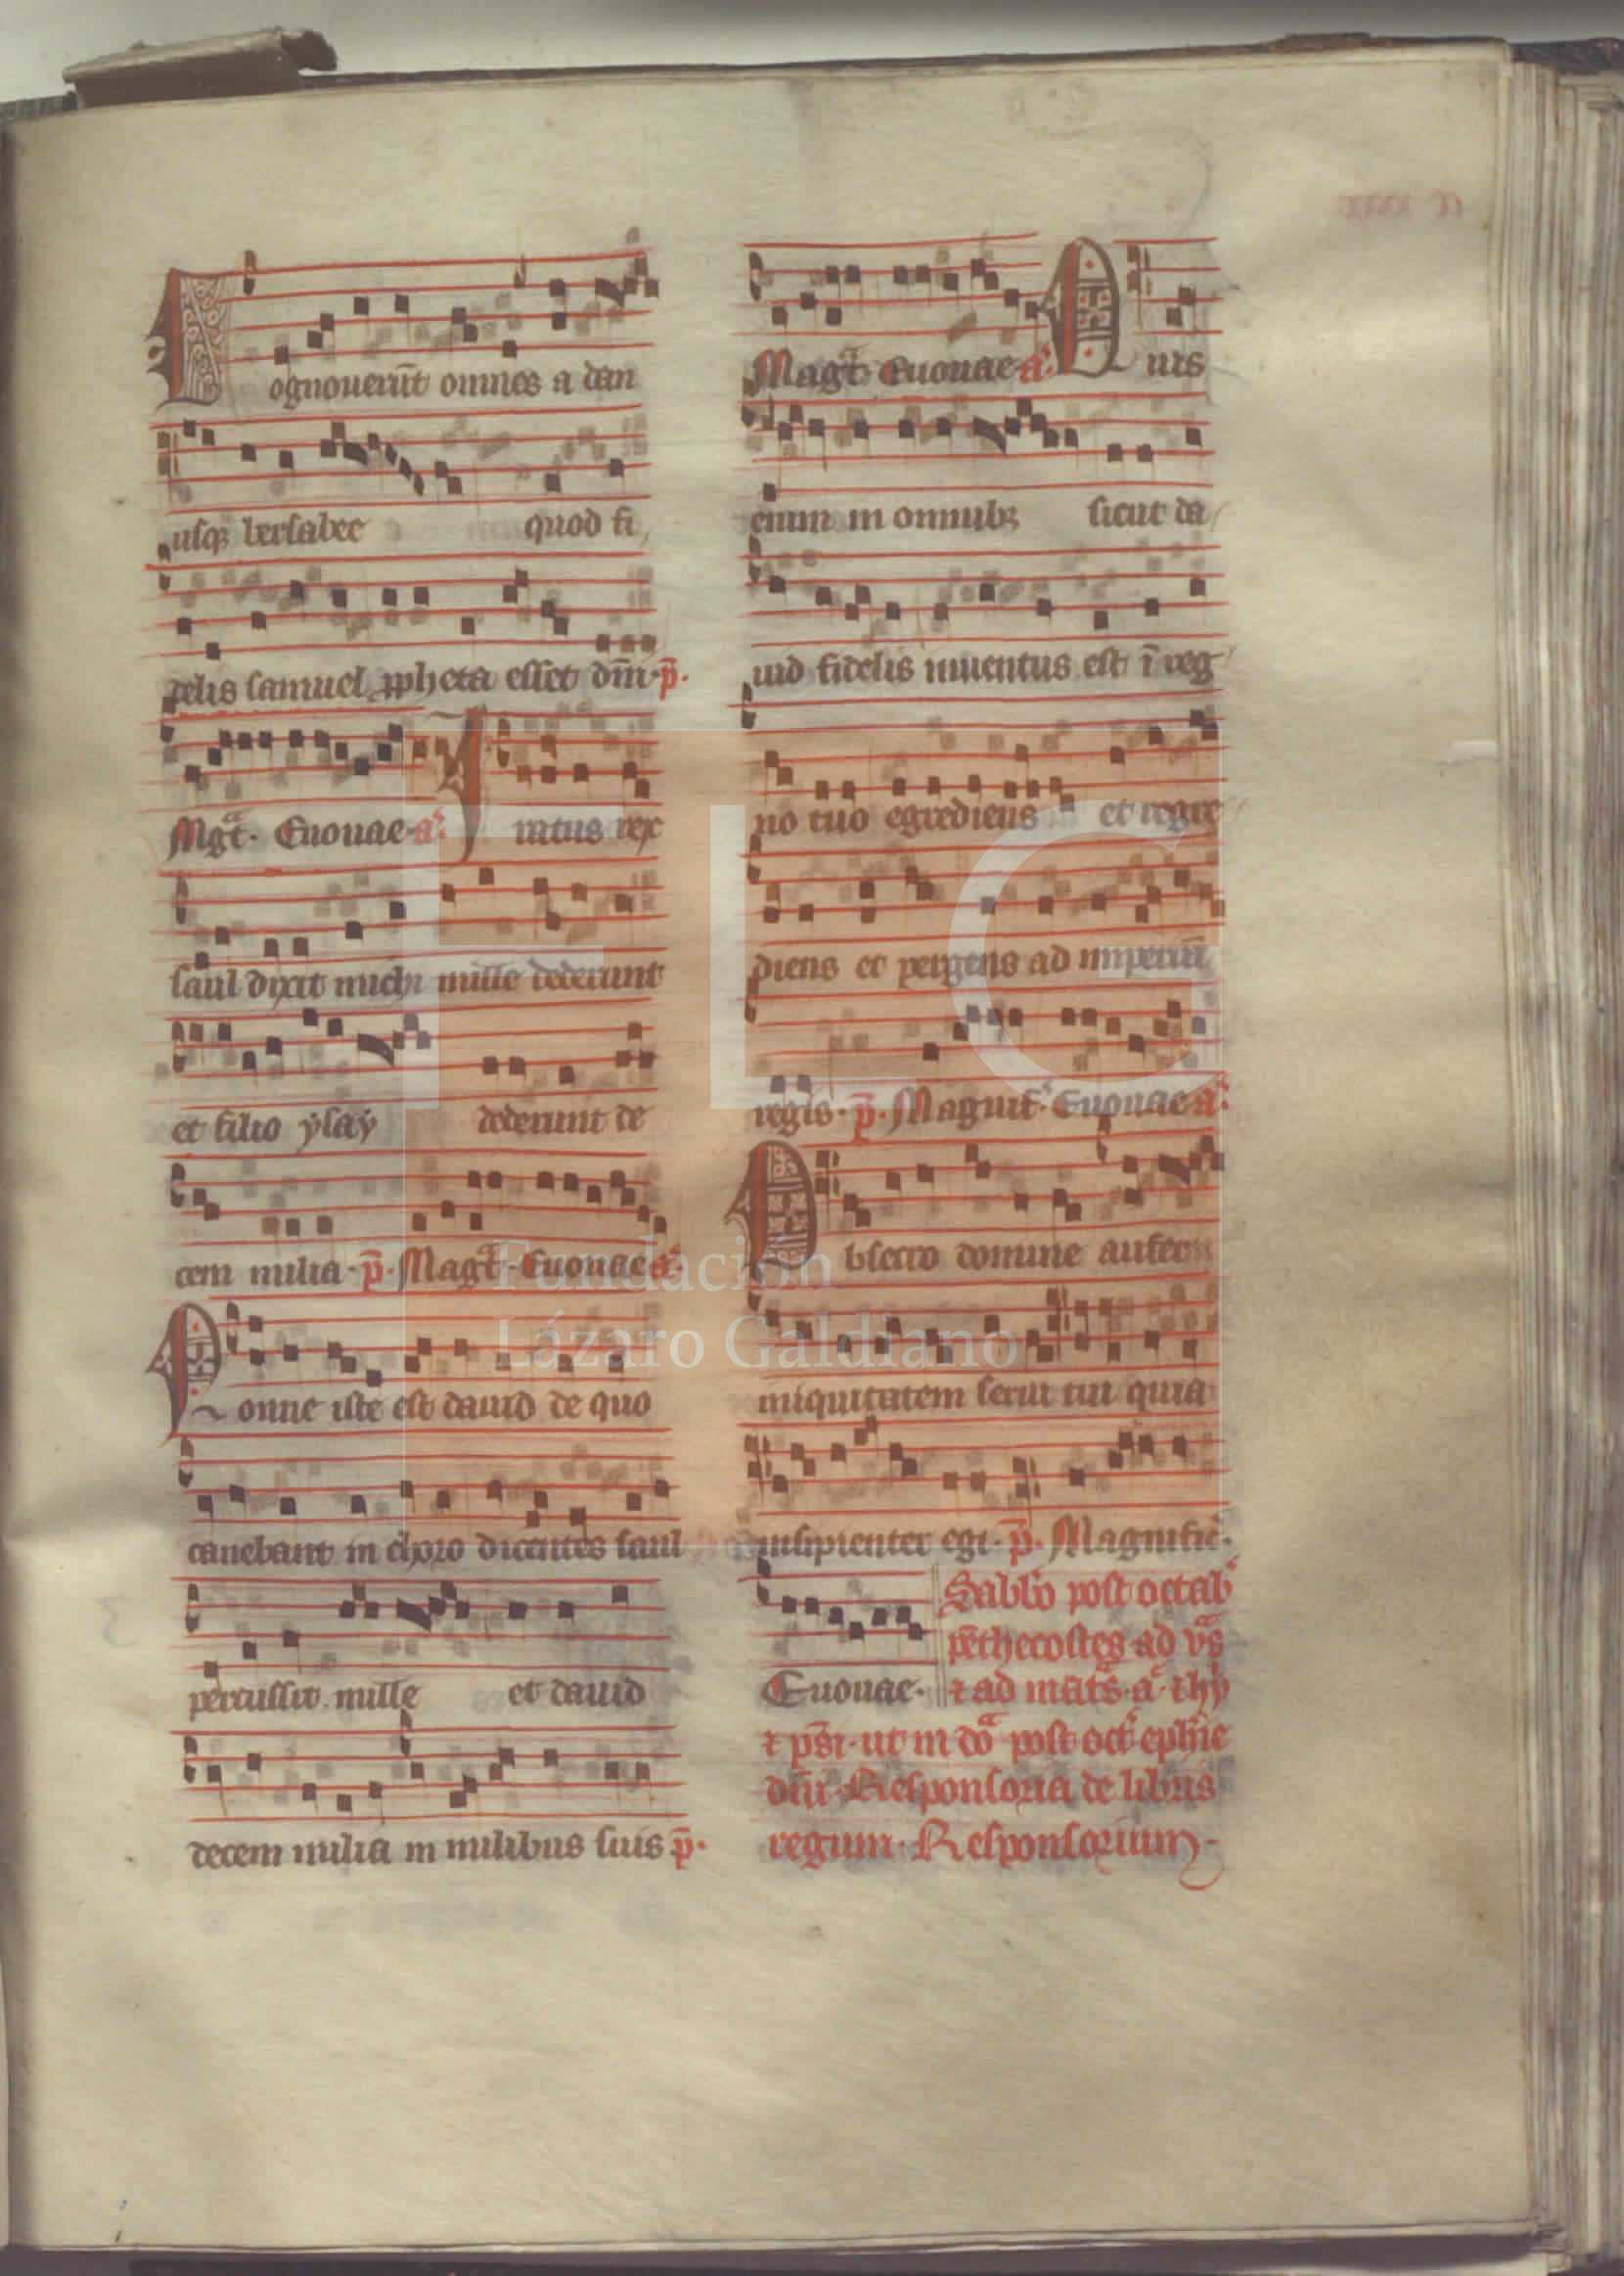 Cognoverūt omnes a dan
usqꝫ bersabee quod fi
delis samuel ꝓpheta esset dñi · p̄.
Mgᵃt̄ · Euouae · aᵃ.
Iratus rex
saul dixit michi mille dederunt
et filio ysaÿ dederunt de
cem milia · p̄. Magt̄ · Euouae aᵃ.
Nonne iste est dauid de quo
canebant in choro dicentes saul
percussit mille et dauid
decem milia in milibus suis p̄.
Magt̄ · Euouae · aᵃ.
Quis
enim in omnibꝫ sicut da
uid fidelis inuentus est ī reg
no tuo egrediens et regre
diens et pergens ad imperiū
regis · p̄. Magnif̄. Euouae aᵃ.
Obsecro domine aufer
iniquitatem serui tui quia
insipienter egi · p̄. Magnific̄.
Euouae.
Sabbō post octab
pēthecostes ad vᵃs
⁊ ad mat̄s · aᵃ · ⁊ hÿ
⁊ ps̄i · ut in dōᵃ post oct̄ ephīe
dn̄i · Responsoria de libris
regum · Responsorium ·
FLG
Fundación
Lázaro Galdiano